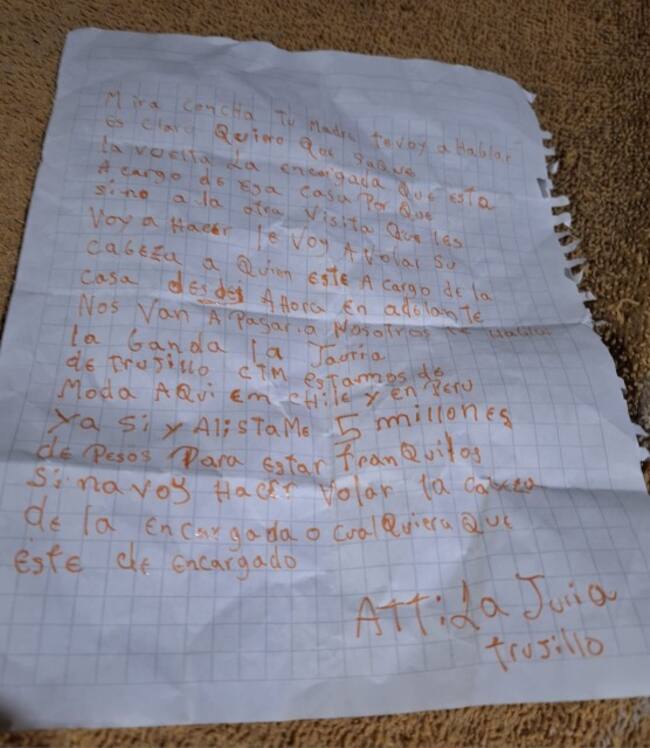 Mira concha tu Madre te voy a Hablar
es claro Quiero Que saque
la vuelta la encargada Que esta
A cargo de Esa casa Por Que
sino a la otra Visita Que les
Voy a Hacer le Voy A Volar su
CabEza a Quien EstE A cargo de la
casa desdes AHora En adelante
Nos Van A Pagar a Nosotros te Hablar
la banda la Jauria
de trujillo CTM estamos de
Moda AQui Em CHile y en PERU
ya si y AlistaME 5 millones
de Pesos Para Estar tranQuilos
Si na voy HacEr Volar la cabeza
dE la Encargada o cualQuiera QuE
EstE de Encargado
ATT: La Juria
trujillo